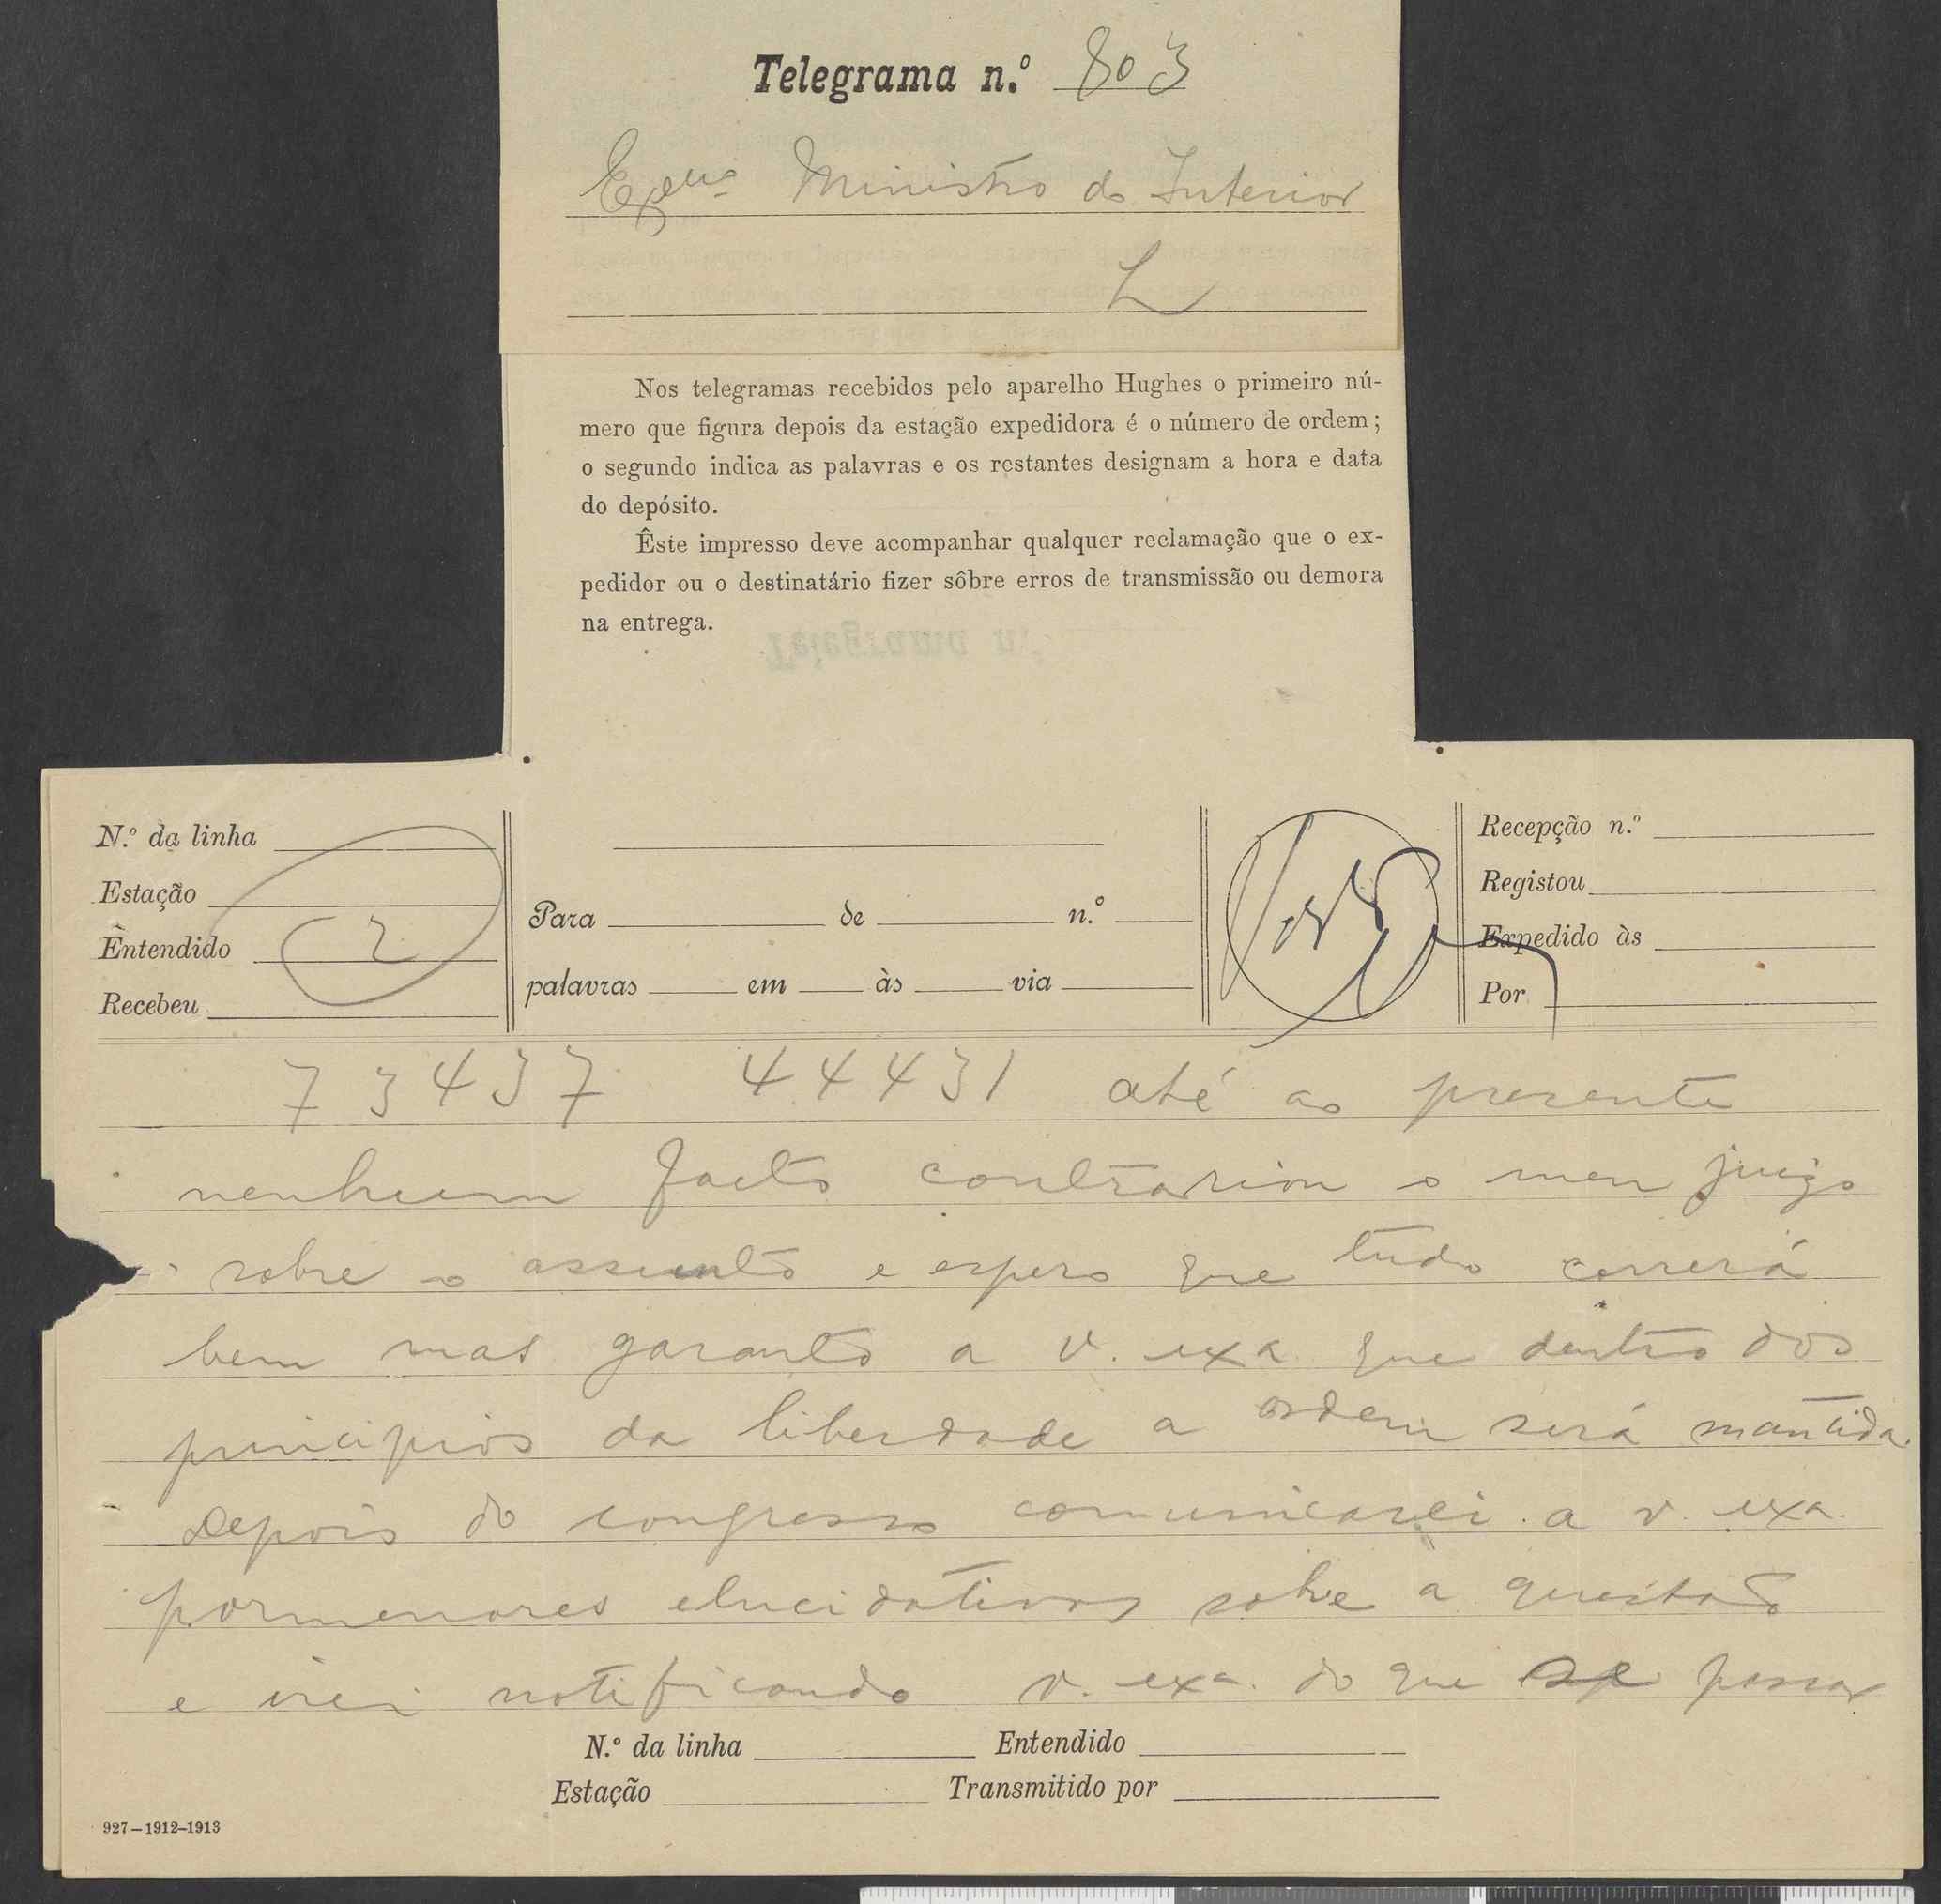 Telegrama n.º 803
Exmo Ministro do Interior
L
Nos telegramas recebidos pelo aparelho Hughes o primeiro nú-
mero que figura depois da estação expedidora é o número de ordem;
o segundo indica as palavras e os restantes designam a hora e data
do depósito.
Êste impresso deve acompanhar qualquer reclamação que o ex-
pedidor ou o destinatário fizer sôbre erros de transmissão ou demora
na entrega.
N.º da linha
Estação
Entendido 2
Recebeu
Para de n.º
palavras em às via
Recepção n.º
Registou
Expedido às
Por
73437 44431 até ao presente
nenhum facto contrariou o meu juizo
sobre o assunto e espero que tudo correrá
bem mas garanto a v. exa que dentro dos
principios da liberdade a ordem será mantida.
Depois do congresso comunicarei a v. exa.
pormenores elucidativos sobre a questão
e irei notificando v. exa. do que se passar
N.º da linha Entendido
Estação Transmitido por
927—1912-1913